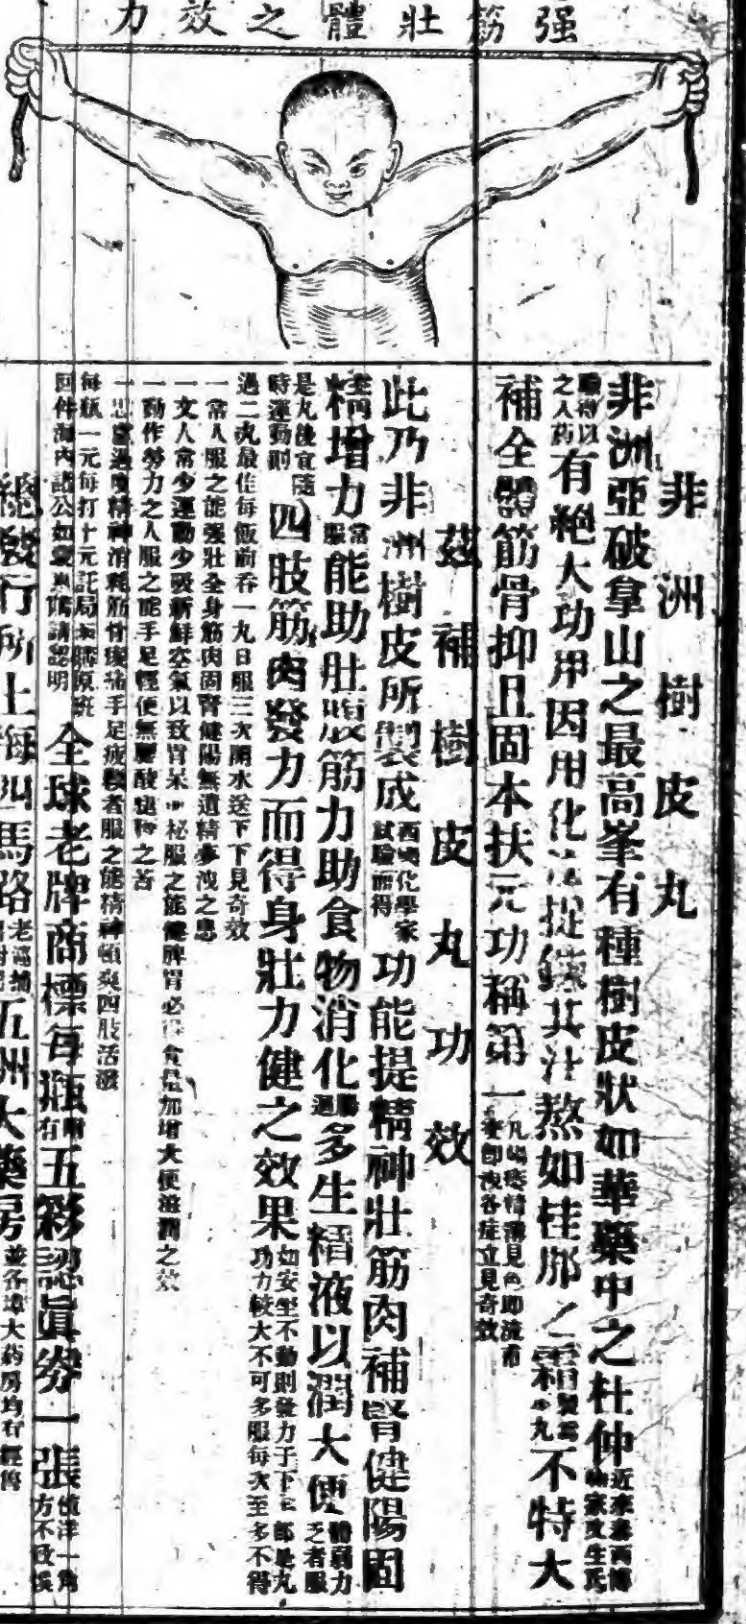 强筋壯體之效力
非洲樹皮丸
非洲亞破拿山之最高峯有種樹皮狀如華藥中之杜仲近來泰西博
之入药有絶大功用因用化提鍊其汁熬如桂霜不特大
補全體筋骨抑且固本扶元功稱第一
茲補樹皮丸功效
此乃非洲樹皮所製成西域化學家試驗而得功能提精神壯筋肉補腎健陽固
精增力常服能助肚腹筋力助食物消化多生精液以潤大便體弱力乏者服
是丸後宜隨時運動則四肢筋肉發力而得身壯力健之效果如安坐不動則發力于下部是丸功力較大不可多服每次至多不得
過二丸最佳每飯前吞一丸日服三次開水送下下見奇效
一常人服之能强壯全身筋肉固腎健陽無遺精夢洩之患
一文人常少運動少吸新鮮空氣以致胃呆服之能健脾胃必得食量加增大便滋潤之效
一動作勞力之人服之能手足輕便無腰酸腿之苦
一思慮過度精神消耗筋骨痠痛手足疲者服之能精神頓爽四肢活潑
每瓶一元每打十元託局
回件海内諸公如請認明全球老牌商標每瓶附有五彩認眞券一張值洋一角方不致悞
總發行所上海四馬路老巡捕房對五洲大藥房並各埠大药房均有經售